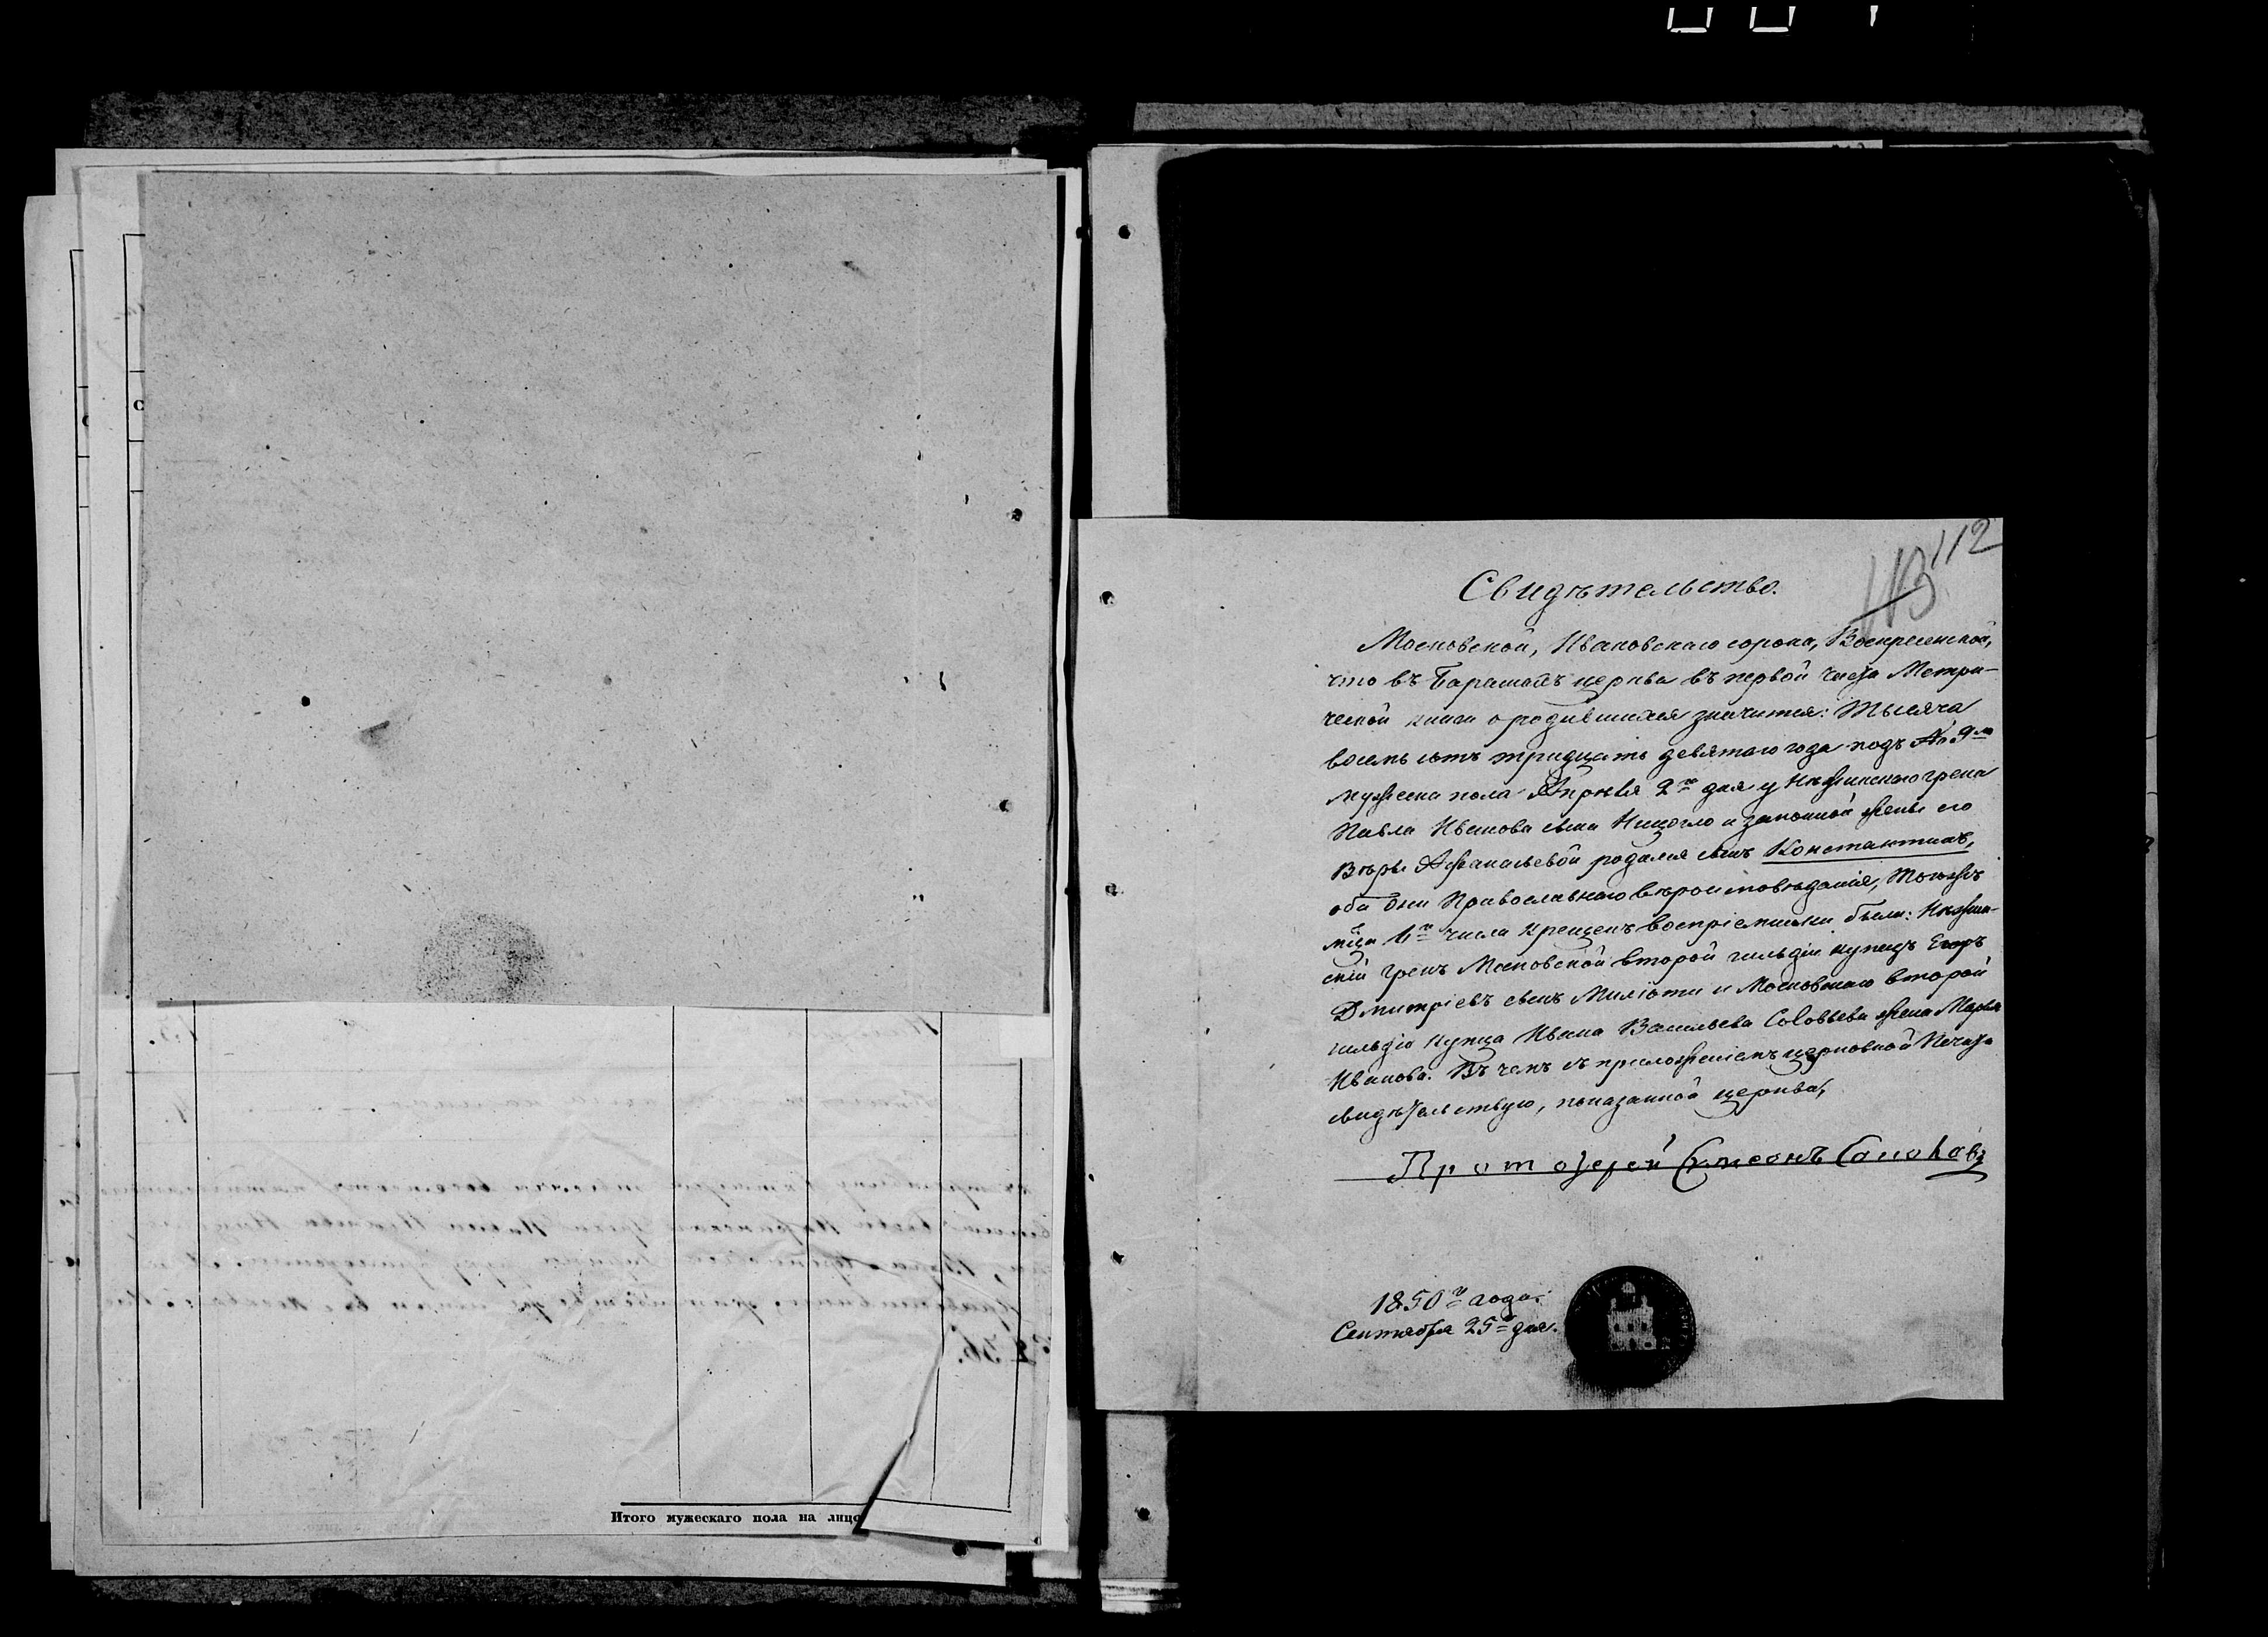 С
Итого мужескаго пола на лицо
112
113
Свидѣтельство.
Московской, Ивановскаго сорока, Воскресенской,
что въ Барашахъ церкви въ первой части Метри-
ческой книги о родившихся значится: Тысяча
восемь сотъ тридцать девятаго года подъ № 9м
мужеска пола Апрѣля 2го дня у Нѣжинскаго грека
Павла Иванова сына и законной жены его
Вѣры Афанасьевой родился сынъ Константинъ,
оба они Православнаго вѣроисповѣданія, тогожъ
мца числа крещенъ воспріемники были: Нѣжин-
скій грекъ Московской второй гильдіи купецъ Егоръ
Дмитріевъ сынъ Миліоти и Московскаго второй
гильдіи купца Ивана Васильева Соловьева жена Марья
Иванова. Въ чемъ съ приложеніемъ церковной печати
свидѣтельствую, показанной церкви,
Протоіерей Симеонъ
1850го года.
Сентября 25го дня.